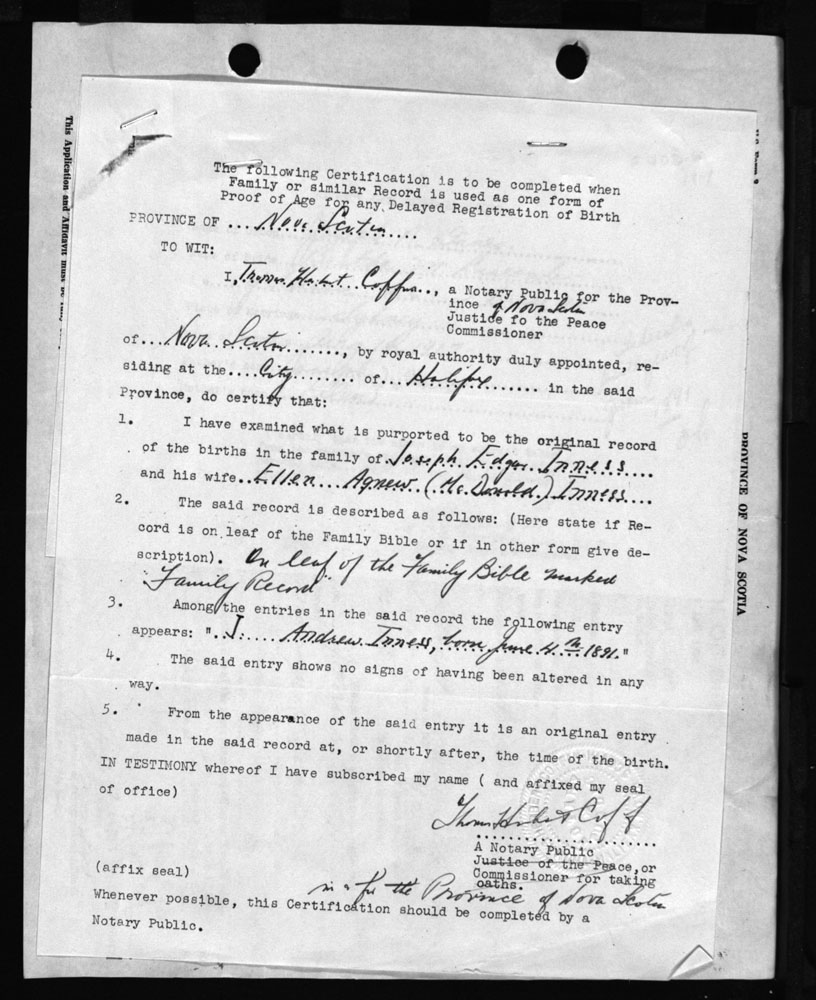 The following Certification is to be completed when
Family or similar Record is used as one form of
Proof of Age for any Delayed Registration of Birth
PROVINCE OF ... Nova Scotia ....
TO WIT:
I, Thomas Herbert Coffin .., a Notary Public for the Prov-
ince of Nova Scotia
Justice fo the Peace
Commissioner
of... Nova Scotia ......., by royal authority duly appointed, re-
siding at the.... City ........ of... Halifax ...... in the said
Province, do certify that:
1. I have examined what is purported to be the original record
of the births in the family of Joseph Edgar Inness ....
and his wife.. Ellen ... Agnew (Mc.Donald.) Inness ....
2. The said record is described as follows: (Here state if Re-
cord is on leaf of the Family Bible or if in other form give de-
scription). On leaf of the Family Bible marked
"Family Record"
3. Among the entries in the said record the following entry
appears: ". J..... Andrew Inness, born June 4th 1891."
4. The said entry shows no signs of having been altered in any
way.
5. From the appearance of the said entry it is an original entry
made in the said record at, or shortly after, the time of the birth.
IN TESTIMONY whereof I have subscribed my name ( and affixed my seal
of office)
Thomas Herbert Coff
A Notary Public
Justice of the Peace, or
Commissioner for taking
oaths.
in & for the Province of Nova Scotia
(affix seal)
Whenever possible, this Certification should be completed by a
Notary Public.
This Application and Affidavit must be
PROVINCE OF NOVA SCOTIA